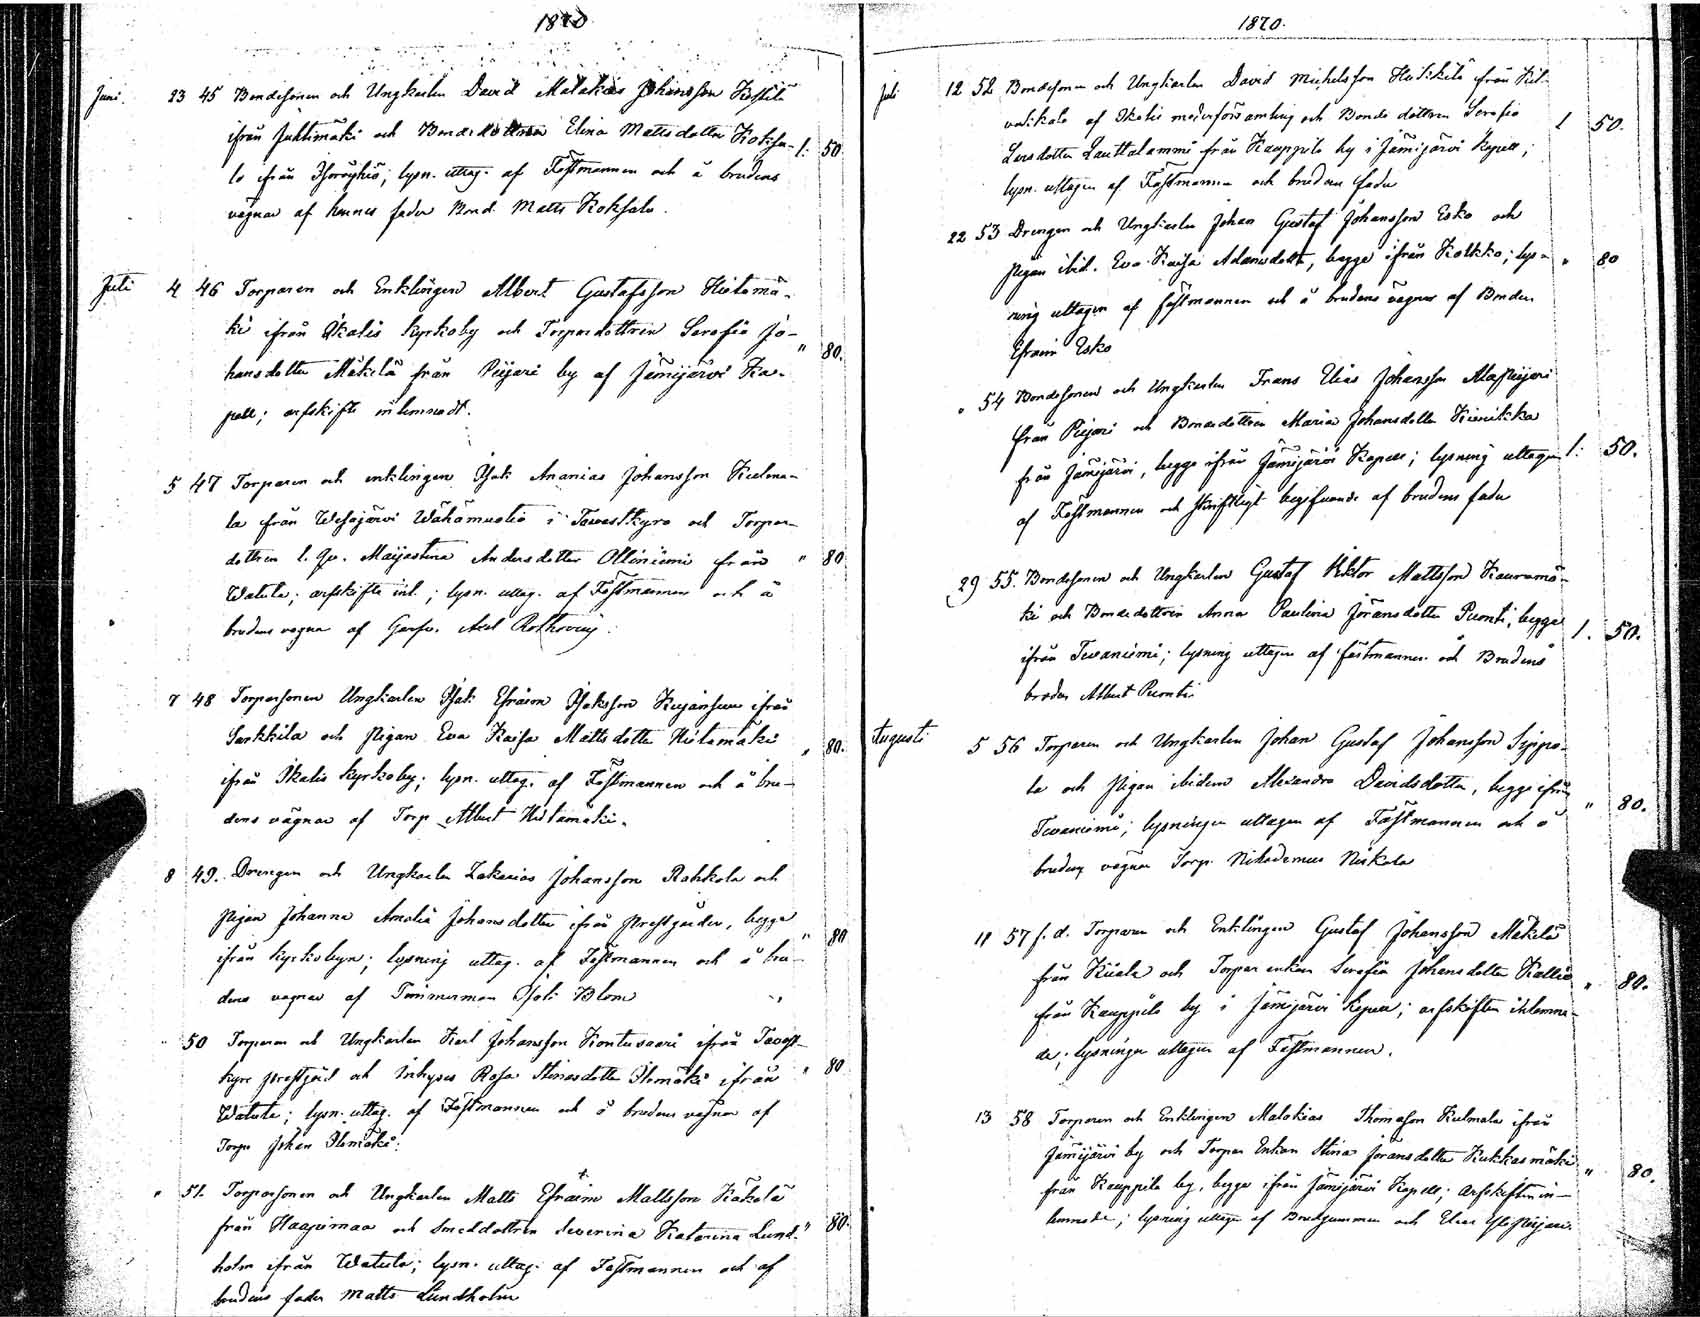 1870
Juni. 23 45 Bondesonen och Ungkarlen David Malakias Johansson
ifrån Juhtimäki och Bondedottren Elina Mattsdotter 1: 50
lo ifrån; lysn. uttag. af Fästmannen och å brudens
vägnar af hennes fader Bond. Matts Koksalo.
Juli 4 46 Torparen och Enklingen Albert Gustafsson Hietamä-
ki ifrån Ikalis Kyrkoby och Torpardottren Serafia Jo-
hansdotter Mäkelä från Piijari by af Jämijärvi Ka- " 80.
pell; arfskifte inlemnadt.
5 47 Torparen och enklingen Isak Ananias Johansson Kulma-
la från Wesajärvi i Tavastkyro och Torpar-
dottren Maijastina Andersdotter Olliniemi från " 80
Watula; arfskifte inl.; lysn. uttag. af Fästmannen och å
brudens vägnar af Axel
7 48 Torparsonen Ungkarlen Isak Efraim Isaksson Kujansuu ifrån
Sarkkila och Pigan Eva Kajsa Mattsdotter Hietamäki
ifrån Ikalis Kyrkoby; lysn. uttag. af Fästmannen och å bru- " 80.
dens vägnar af Torp. Albert Hietamäki.
8 49. Drengen och Ungkarlen Zakarias Johansson Rahkola och
Pigan Johanna Amalia Johansdotter ifrån Prestgården, begge
ifrån Kyrkobyn; lysning uttag. af Fästmannen och å bru- " 80
dens vägnar af Timmerman Isak Blom
50 Torparen och Ungkarlen Karl Johansson Kontusaari ifrån Tavast-
kyro prestgård och Inhyses Rosa Stinasdotter Ilomäki ifrån " 80
Watula; lysn. uttag. af Fästmannen och å brudens vägnar af
Torp. Johan Ilomäki.
" 51. Torparsonen och Ungkarlen Matts Efraim Mattsson Käkelä
från Haapimaa och Smeddottren Severina Katarina Lund- " 80.
holm ifrån Watula; lysn. uttag. af Fästmannen och af
brudens fader Matts Lundholm
1870.
Juli 12 52 Bondesonen och Ungkarlen David Michelsson Heikkilä från Kil-
vakkala af Ikalis moderförsamling och Bonde dottren Serafia
Larsdotter Lauttalammi från Kauppila by i Jämijärvi Kapell; 1 50.
lysn. uttagen af Fästmannen och brudens fader
22 53 Drengen och Ungkarlen Johan Gustaf Johansson Esko och
Pigan ibid. Eva Kaisa Adamsdotter, begge ifrån Kolkko; lys- " 80
ning uttagen af fästmannen och å brudens vägnar af Bonden
Efraim Esko
" 54 Bondesonen och Ungkarlen Frans Elias Johansson Alapiijari
från Piijari och Bondedottren Maria Johansdotter
från Jämijärvi, begge ifrån Jämijärvi Kapell; lysning uttagen 1: 50.
af Fästmannen och skriftligt begifvande af brudens fader
29 55. Bondesonen och Ungkarlen Gustaf Viktor Mattsson Kauramä-
ki och Bondedottren Anna Paulina Jöransdotter Puonti, begge
ifrån Tevaniemi; lysning uttagen af fästmannen och Brudens 1. 50.
broder Albert Puonti
Augusti 5 56 Torparen och Ungkarlen Johan Gustaf Johansson Seppä-
lä och Pigan ibidem Alexandra Davidsdotter, begge ifrån
Tevaniemi; lysningen uttagen af Fästmannen och å " 80.
brudens vägnar Torp. Nikodemus Niskala
11 57 f. d. Torparen och Enklingen Gustaf Johansson Mäkelä
från och Torpar enkan Serafia Johansdotter Kallio
från Kauppila by i Jämijärvi Kapell; arfskiften inlemna- " 80.
de; lysningen uttagen af Fästmannen.
13 58 Torparen och Enklingen Malakias Thomasson Kulmala ifrån
Jämijärvi by och Torpar Enkan Stina Jöransdotter Kukkasmäki
från Kauppila by, begge ifrån Jämijärvi Kapell; arfskiften in- " 80.
lemnade; lysning uttagen af Brudgummen och Elias